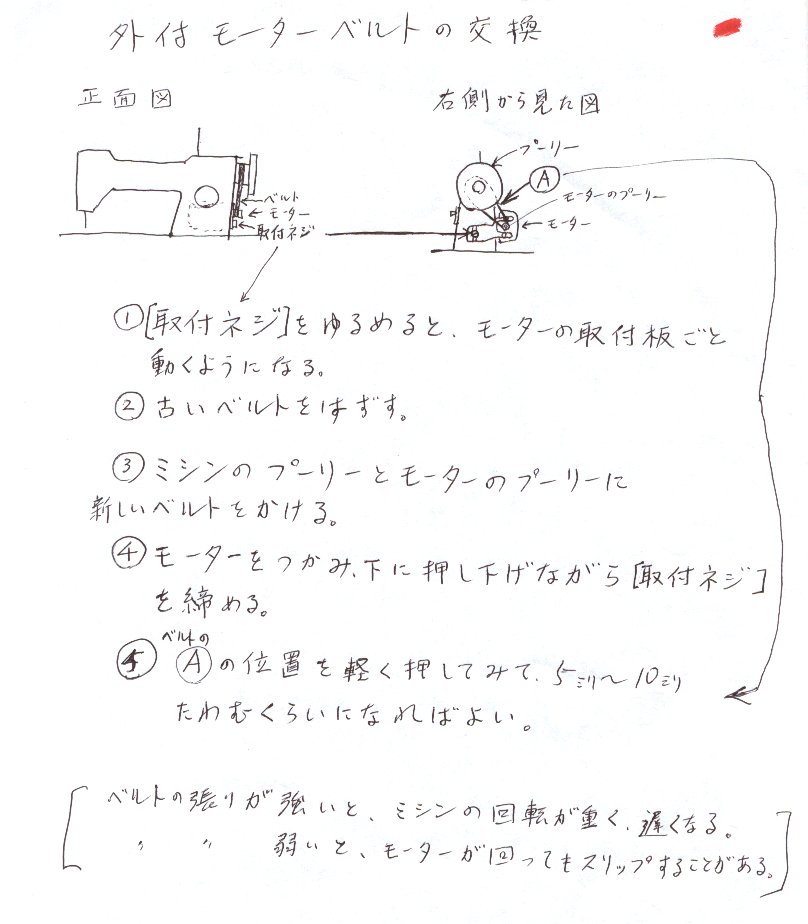 外付モーターベルトの交換
正面図
右側から見た図
プーリー
A
ベルト
モーター
取付ネジ
モーターのプーリー
モーター
①[取付ネジ]をゆるめると、モーターの取付板ごと
動くようになる。
②古いベルトをはずす。
③ミシンのプーリーとモーターのプーリーに
新しいベルトをかける。
④モーターをつかみ、下に押し下げながら[取付ネジ]
を締める。
⑤ベルトのⒶの位置を軽く押してみて、5ミリ〜10ミリ
たわむくらいになればよい。
[ベルトの張りが強いと、ミシンの回転が重く、遅くなる。
〃 〃 弱いと、モーターが回ってもスリップすることがある。]